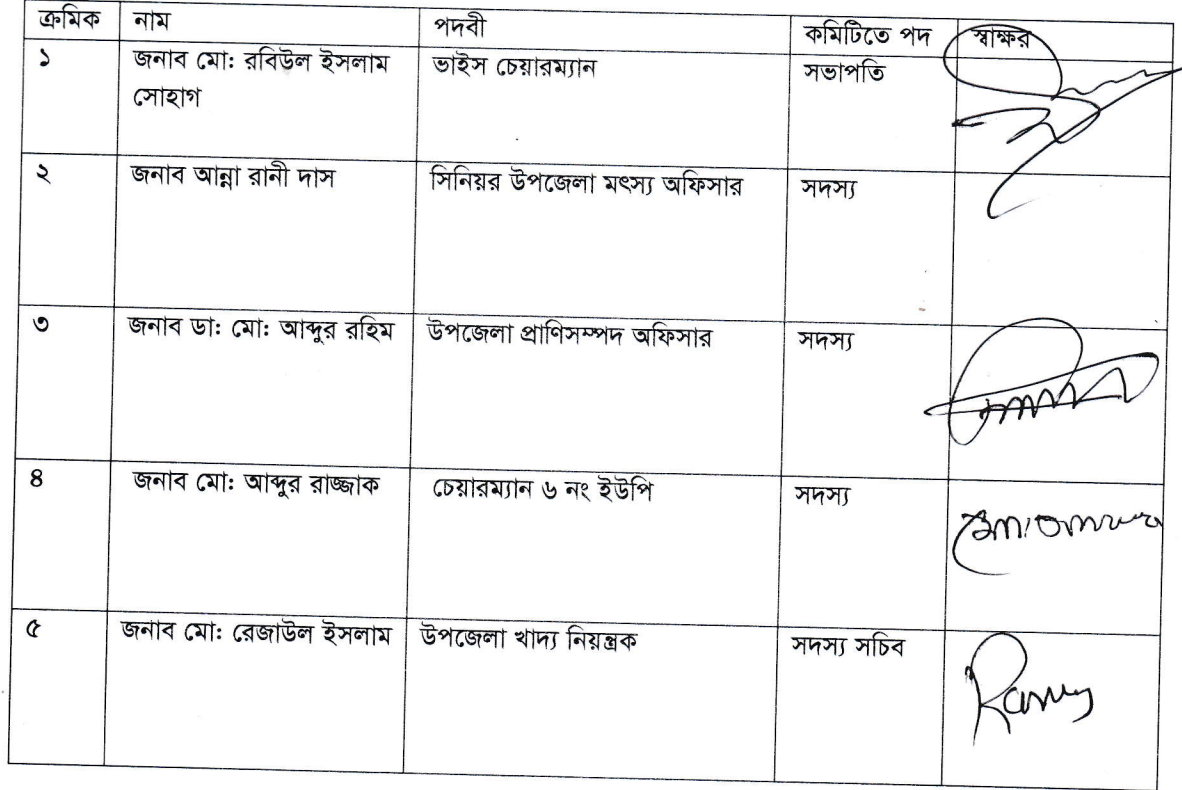 ক্রমিক নাম পদবী কমিটিতে পদ স্বাক্ষর
১ জনাব মো: রবিউল ইসলাম ভাইস চেয়ারম্যান সভাপতি
সোহাগ
২ জনাব আন্না রানী দাস সিনিয়র উপজেলা মৎস্য অফিসার সদস্য
৩ জনাব ডা: মো: আব্দুর রহিম উপজেলা প্রাণিসম্পদ অফিসার সদস্য
৪ জনাব মো: আব্দুর রাজ্জাক চেয়ারম্যান ৬ নং ইউপি সদস্য
৫ জনাব মো: রেজাউল ইসলাম উপজেলা খাদ্য নিয়ন্ত্রক সদস্য সচিব